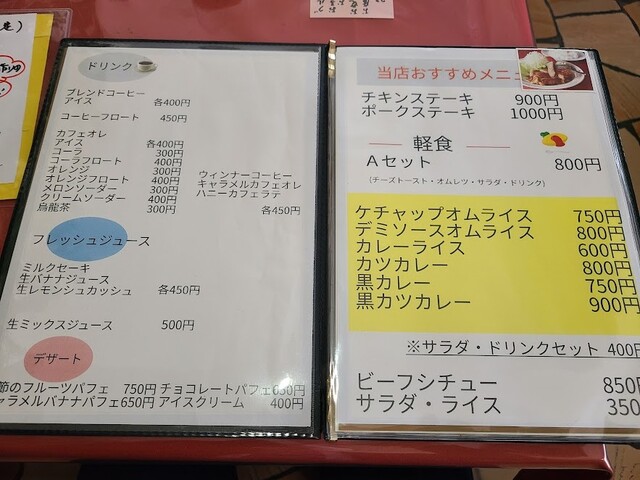 ドリンク
ブレンドコーヒー
アイス 各400円
コーヒーフロート 450円
カフェオレ
アイス 各400円
コーラ 300円
コーラフロート 400円
オレンジ 300円
オレンジフロート 400円
メロンソーダー 300円
クリームソーダー 400円
烏龍茶 300円
ウィンナーコーヒー
キャラメルカフェオレ
ハニーカフェラテ
各450円
フレッシュジュース
ミルクセーキ
生バナナジュース
生レモンシュカッシュ 各450円
生ミックスジュース 500円
デザート
節のフルーツパフェ 750円 チョコレートパフェ650円
ャラメルバナナパフェ650円 アイスクリーム 400円
当店おすすめメニュ
チキンステーキ 900円
ポークステーキ 1000円
軽食
Aセット 800円
(チーズトースト・オムレツ・サラダ・ドリンク)
ケチャップオムライス 750円
デミソースオムライス 800円
カレーライス 600円
カツカレー 800円
黒カレー 750円
黒カツカレー 900円
※サラダ・ドリンクセット 400円
ビーフシチュー 850円
サラダ・ライス 350